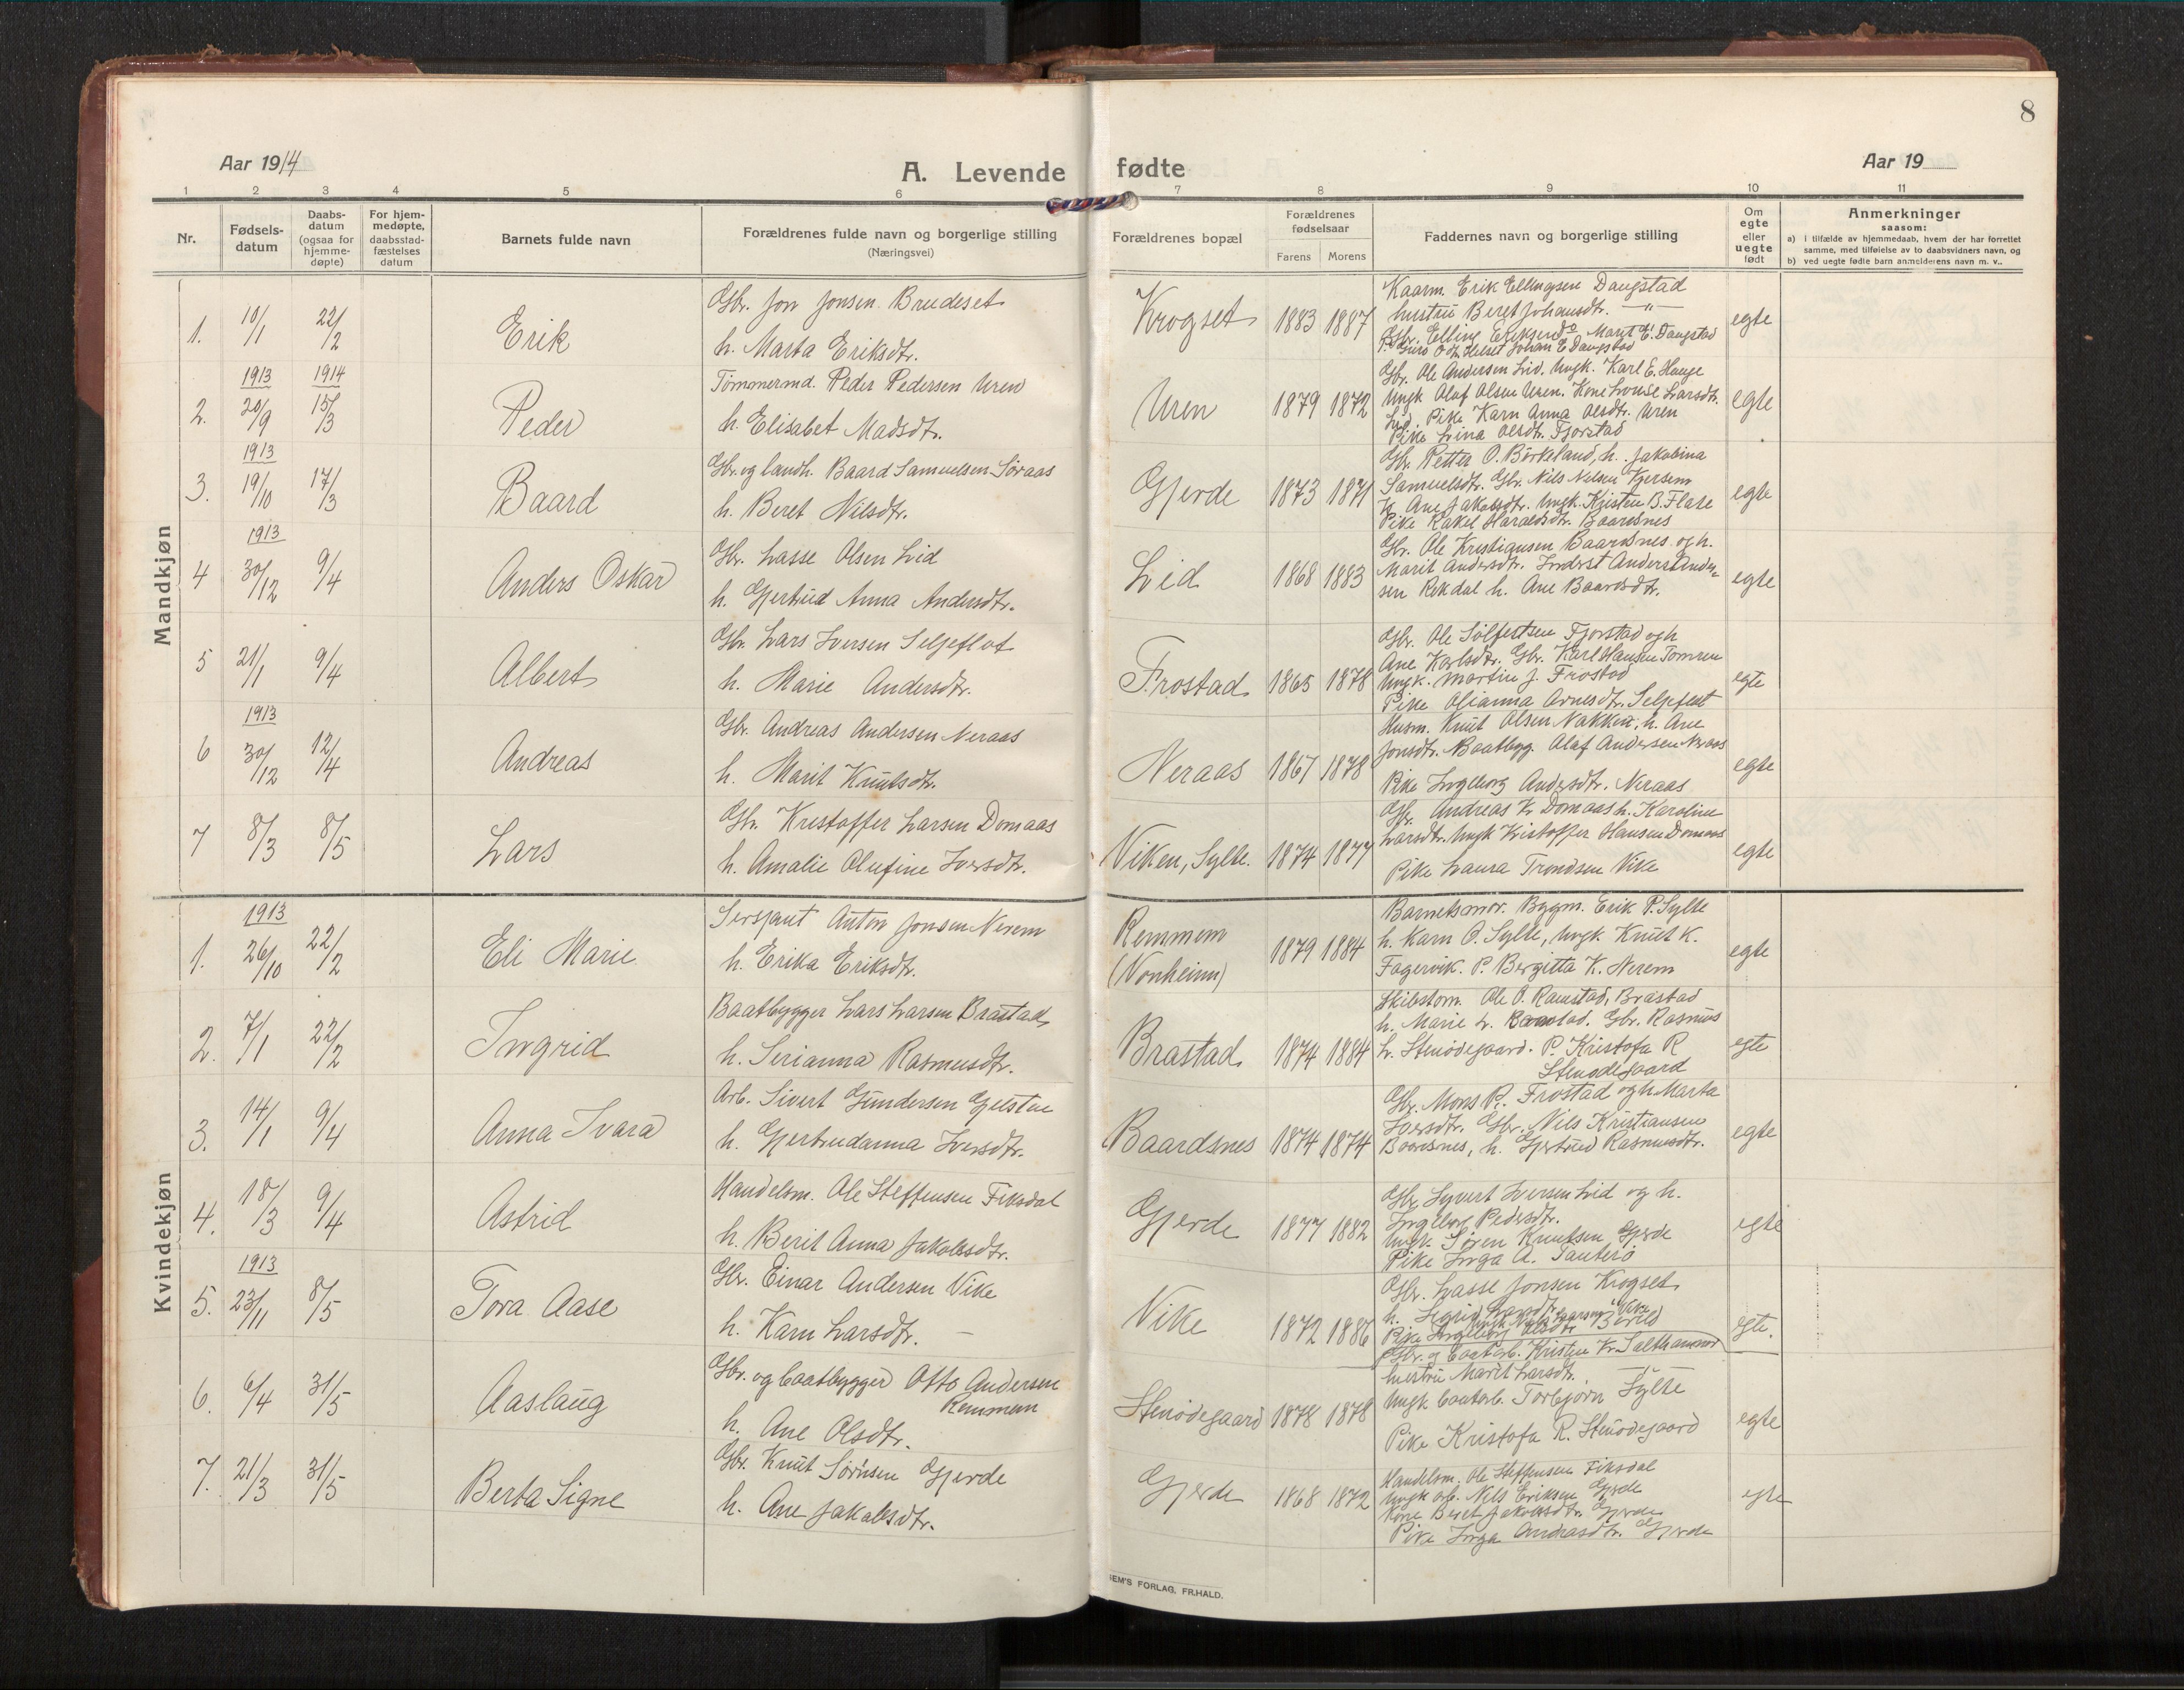 8
Aar 1914
A. Levende fødte
Aar 19
1 2 3 4 5 6 7 8 9 10 11
Nr.
Fødsels-
datum
Daabs-
datum
(ogsaa for
hjemme-
døpte)
For hjem-
medøpte,
daabsstad-
fæstelses
datum
Barnets fulde navn
Forældrenes fulde navn og borgerlige stilling
(Næringsvei)
Forældrenes bopæl
Forældrenes
fødselsaar
Farens Morens
Faddernes navn og borgerlige stilling
Om
egte
eller
uegte
født
Anmerkninger
saasom:
a) i tilfælde av hjemmedaab, hvem der har forrettet
samme, med tilføielse av to daabsvidners navn, og
b) ved uegte fødte barn anmelderens navn m. v..
Mandkjøn
1. 10/1 22/2 Erik
Gbr. Jon Jonsen Brudeset
h. Marta Eriksdtr.
Krogset 1883 1887
Kaarm. Erik Ellingsen Daugstad
hustru Beret Johansdtr. —"—
Gbr. Elling Eriksen do Marit E. Daugstad
Johan E Daugstad
egte
2. 1913 20/9 1914 15/3 Peder
Tømmermd. Peder Pedersen Uren
h. Elisabet Madsdtr.
Uren 1879 1872
Gbr. Ole Andersen Lid. Ungk. Karl E. Hauge
Ungk Olaf Olsen Uren. Kone Louise Larsdtr.
Lid. Pike Karn Anna Olsdtr. Uren
Pike Lina Olsdtr. Fjorstad
egte
3. 1913 19/10 17/3 Baard
Gbr. og landh. Baard Samuelsen Søraas
h. Beret Nilsdtr.
Gjerde 1873 1871
Gbr. Petter O. Børkeland, h. Jakobina
Samuelsdtr. Gbr. Nils Nilsen Kjersem
h. Ane Jakobsdtr. Ungk. Kristen B. Flate
Pike Rakel Haraldsdtr. Baardsnes
egte
4 1913 30/12 9/4 Anders Oskar
Gbr. Lasse Olsen Lid
h. Gjertrud Anna Andersdtr.
Lid 1868 1883
Gbr. Ole Kristiansen Baardsnes og h.
Marit Andersdtr. Inderst Anders Ander-
sen Rekdal h. Ane Baardsdtr.
egte
5 21/1 9/4 Albert
Gbr. Lars Iversen Seljeflot
h. Marie Andersdtr.
Frostad 1865 1878
Gbr. Ole Sølfestsen Fjorstad og h
Ane Karlsdtr. Gbr. Karl Hansen Tomren
Ungk. Martin J. Frostad
Pike Olianna Arnesdtr. Seljeflot
egte
6 1913 30/12 12/4 Andreas
Gbr. Andreas Andersen Neraas
h. Marit Knutsdtr.
Neraas 1867 1878
Husm. Knut Olsen Nakken, h. Ane
Jonsdtr. Baatbyg. Olaf Andersen Neraas
Pike Ingeborg Andersdtr. Neraas
egte
7 8/3 8/5 Lars
Gbr. Kristoffer Larsen Domaas
h. Amalie Olufine Iversdtr.
Viken, Sylte. 1874 1877
Gbr. Andreas K. Domaas h. Karoline
Larsdtr. Ungk Kristoffer Hansen Domaas
Pike Laura Trondsen Vike
egte
Kvindekjøn
1. 1913 26/10 22/2 Eli Marie
Sersjant Anton Jonsen Nerem
h. Erika Eriksdtr.
Remmem
(Vonheim)
1879 1884
Barnets mor. Bygm. Erik P. Sylte
h. Karn O. Sylte, Ungk Knut K.
Fagervik. P. Bergitta K. Nerem
egte
2. 7/1 22/2 Ingrid
Baatbygger Lars Larsen Brastad
h. Serianna Rasmusdtr.
Brastad 1874 1884
Skibstøm. Ole O. Ramstad, Brastad
h. Marie L. Ramstad. Gbr. Rasmus
L. Stenødegaard. P. Kristofa R
Stenødegaard
egte
3. 14/1 9/4 Anna Ivara
Arb. Sivert Gundersen Gjelstue
h. Gjertrudanna Iversdtr.
Baardsnes 1874 1874
Gbr. Mons P. Frostad og h. Marta
Iversdtr. Gbr. Nils Kristiansen
Baardsnes, h. Gjertrud Rasmusdtr.
egte
4. 18/3 9/4 Astrid
Handelsm. Ole Steffensen Fiksdal
h. Berit Anna Jakobsdtr.
Gjerde 1877 1882
Gbr Syvert Iversen Lid og h.
Ingeborg Pedersdtr.
Ungk. Søren Knutsen Gjerde
Pike Inga A. Tauterø
egte
5. 1913 23/11 8/5 Tora Aase
Gbr. Einar Andersen Vike
h. Karn Larsdtr. —
Vike 1872 1886
Gbr. Lasse Jonsen Krogset
h. Sigrid Larsdtr.
Pike Ingeborg Olsdtr
egte.
6. 6/4 31/5 Aaslaug
Gbr. og baatbygger Otto Andersen
Remmem
h. Ane Olsdtr.
Stenødegaard 1878 1878
Gbr. og baatarb. Kristen Kr. Salthammer
hustru Marit Larsdtr. —"—
Ungk baatarb. Torbjørn Sylte
Pike Kristofa R. Stenødegaard
egte
7. 21/3 31/5 Berta Signe
Gbr. Knut Sørnsen Gjerde
h. Ane Jakobsdtr.
Gjerde 1868 1872
Handelsm. Ole Steffensen Fiksdal
Ungk arb. Nils Eriksen Gjerde
Kone Beret Jakobsdtr. Gjerde
Pike Inga Andreasdtr. Gjerde
egte
SEM'S FORLAG, FR.HALD.